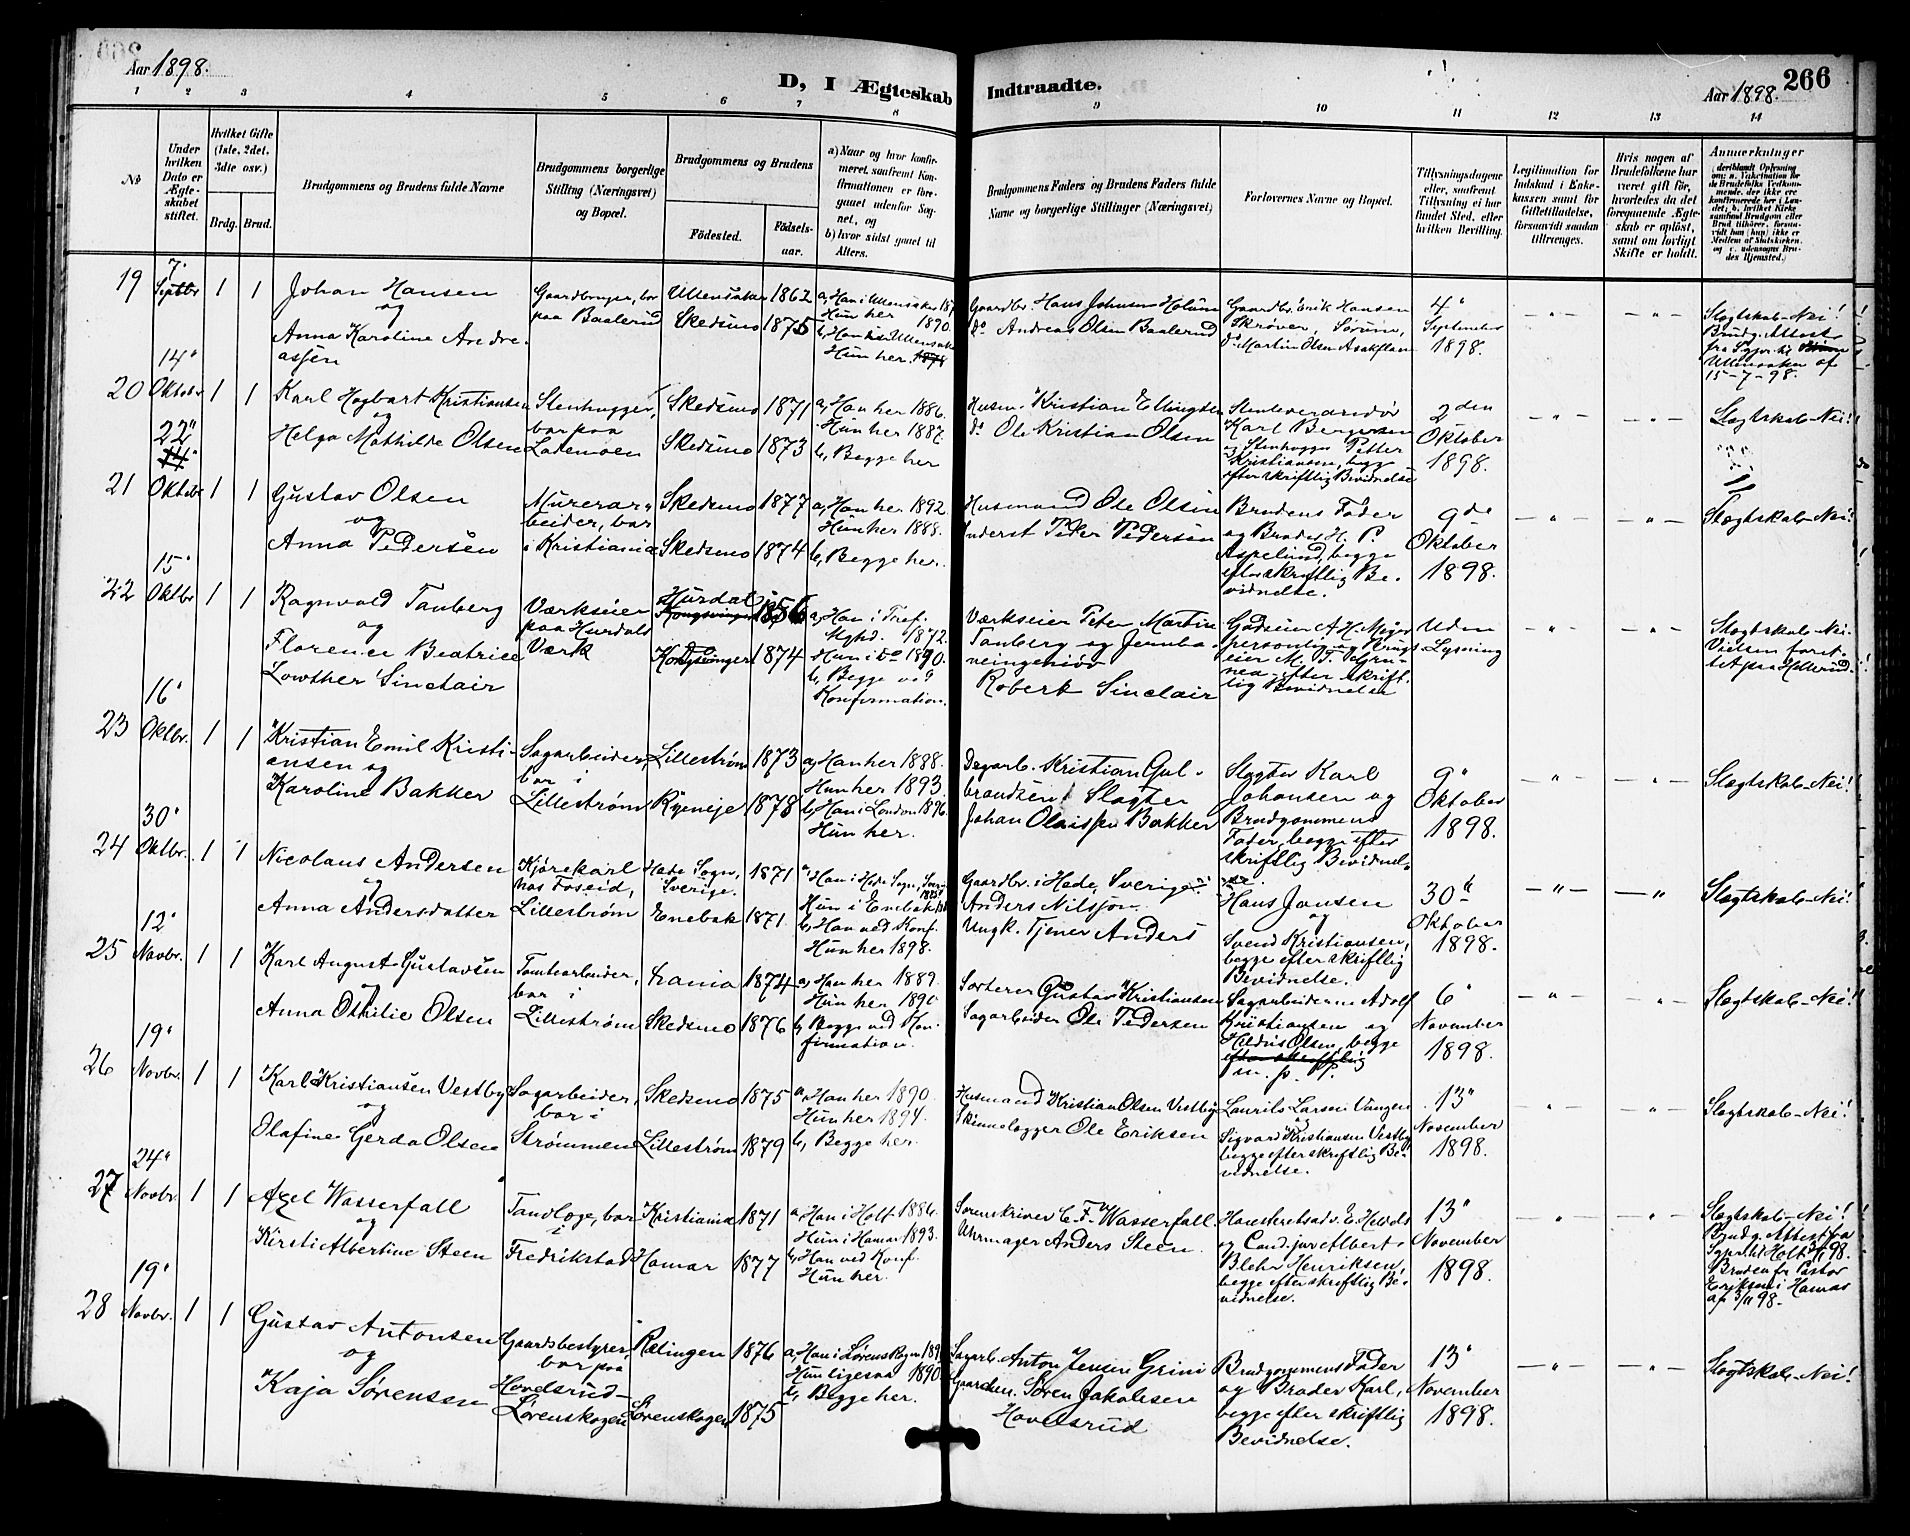 Aar 1898.
D, I Ægteskab Indtraadte.
Aar 1898. 266
1 2 3 4 5 6 7 8 9 10 11 12 13 14
No
Under hvilken Dato er Ægteskabet stiftet.
Hvilket Gifte (1ste, 2det, 3die osv.)
Brdg. Brud.
Brudgommens og Brudens fulde Navne
Brudgommens borgerlige Stilling (Næringsvei) og Bopæl.
Brudgommens og Brudens
Fødested.
Fødselsaar.
a) Naar og hvor konfirmeret, saafremt Konfirmationen er foregaaet udenfor Sognet, og
b) hvor sidst gaaet til Alters.
Brudgommens Faders og Brudens Faders fulde Navne og borgerlige Stillinger (Næringsvei)
Forlovernes Navne og Bopæl.
Tillysningsdagene eller, saafremt Tillysning ei har fundet Sted, efter hvilken Bevilling.
Legitimation for Indskud i Enkekassen samt for Giftetilladelse, forsaavidt saadan tiltrænges.
Hvis nogen af Brudefolkene har været gift før, hvorledes da det foregaaende Ægteskab er opløst, samt om lovligt Skifte er holdt.
Anmærkninger
19
7. Septbr
1 1
Johan Hansen
og
Anna Karoline Andreassen
Gaardbruger, bor
paa Baalerud
Ullensaker 1862
Skedsmo 1875
a, Han i Ullensaker
Hun her 1890.
Hun her.
Gaardbr. Hans Johnsen Holum
Do Andreas Olsen Baalerud
Gaardbr. Erik Hansen
Skrøver, Sørum,
Do Martin Olsen Asakflan
4"
September
1898.
Slegtskab-Nei!
Brudg. Attest
fra Sgpr. til
Ullensaker af
15-7-98.
20
14" Oktobr
1 1
Karl Hagbart Kristiansen
og
Helga Mathilde Olsen
Stenhugger,
bor paa
Lademoen
Skedsmo 1871
Skedsmo 1873
a, Han her 1886.
Hun her 1887.
b, Begge her
Husm. Kristian Ellingsen
Do Ole Kristian Olsen
Karl Bergersen
og Stenhugger Petter
Kristiansen, begge
efter skriftlig Bevidnelse
2den
Oktober
1898.
Slægtskab-Nei!
21
22" Oktobr
1 1
Gustav Olsen
og
Anna Pedersen
Murerarbeider, bor
i Kristiania
Skedsmo 1877
Skedsmo 1874
a, Han her 1892.
Hun her 1888.
b, Begge her.
Husmand Ole Olsen
Inderst Peder Pedersen
Brudens Fader
og Broder H. P.
Aspelund, begge
efter skriftlig Bevidnelse.
9de
Oktober
1898.
Slægtskab-Nei!
22
15" Oktbr
1 1
Ragnvald Tanberg
og
Florence Beatrice
Lowther Sinclair
Værkseier
paa Hurdals
Værk
Hurdal 1856
Kongsvinger 1874
a, Han i Tref.
Mghd. 1872.
Hun i Do 1890.
b, Begge ved
Konfirmation.
Værkseier Peter Martin
Tanberg og Jernbaneingeniør
Robert Sinclair
Godseier A. H. Mejer
personlig og Brugseier
efter skriftlig Bevidnelse
Uden
Lysning
Slægtskab-Nei.
Vielsen forettet paa Hellerud.
23
16" Oktbr.
1 1
Kristian Emil Kristiansen og
Karoline Bakker
Sagarbeider,
bor i
Lillestrøm
Lillestrøm 1873
Ryeneje 1878
a, Han her 1888.
Hun her 1893.
b, Han i London 1896.
Hun her.
Kristian Gulbrandsen
Slagter
Johan Olaisen Bakker
Slagter Karl
Johansen og
Brudgommens
Fader, begge efter
skriftlig Bevidnelse.
9"
Oktober
1898.
Slægtskab-Nei!
24
30" Oktbr.
1 1
Nicolaus Andersen
og
Anna Andersdatter
Kjørekarl
hos Foseid,
Lillestrøm
Hede Sogn,
Sverige. 1871
Enebak 1871.
a, Han i Hede Sogn,
Hun i Enebak
b, Han ved Konf.
Hun her 1898.
Gaardbr. i Hede, Sverige
Anders Nilsson
Ungk. Tjener Anders
Hans Jansen
og
Svend Kristiansen,
begge efter skriftlig
Bevidnelse.
30"
Oktober
1898.
Slægtskab-Nei!
25
12" Novbr.
1 1
Karl August Gustavsen
og
Anna Othilie Olsen
Tomtearbeider,
bor i
Lillestrøm
1874
Skedsmo 1876
a, Han her 1889.
Hun her 1890
b, Begge ved Konfirmation.
Sorterer Gustav Kristiansen
Sagarbeider Ole Pedersen
Sagarbeiderne Adolf
Kristiansen og
Hildris Olsen, begge
m. p. P.
6"
November
1898.
Slægtskab-Nei!
26
19" Novbr.
1 1
Karl Kristiansen Vestby
og
Olafine Gerda Olsen
Sagarbeider,
bor i
Strømmen
Skedsmo 1875
Lillestrøm 1879
a, Han her 1890.
Hun her 1894.
b, Begge her.
Husmand Kristian Olsen Vestby
Skinnelægger Ole Eriksen
Laurits Larsen Vangen
og
Sigvard Kristiansen Vestby
begge efter skriftlig Bevidnelse.
13"
November
1898.
Slægtskab-Nei!
27
24" Novbr.
1 1
Axel Wasserfall
og
Kirsti Albertine Steen
Tandlæge, bor
i
Fredrikstad
Kristiania 1871
Hamar 1877
a, Han i Holt 1886.
Hun i Hamar 1893.
b, Han ved Konf.
Hun her.
Sorenskriver C. F. Wasserfall.
Uhrmager Anders Steen.
og Cand. jur Albert
Blehr Henriksen,
begge efter skriftlig Bevidnelse.
13"
November
1898.
Slægtskab-Nei!
Brudg. Attest fra
Sgpr. til Holt 98.
Bruden fr Pastor
Eriksen i Hamar
af 3/11 98.
28
19" Novbr.
1 1
Gustav Antonsen
og
Kaja Sørensen
Gaardsbestyrer,
bor paa
Hovelsrud-
Lørenskogen
Rælingen 1876
Lørenskogen 1875
a, Han i Lørenskogen
Hun ligesaa 1890.
b, Begge her.
Sagarb. Anton Jensen Grini
Søren Jakobsen
Hovelsrud
Brudgommens Fader
og Broder Karl,
begge efter skriftlig
Bevidnelse.
13"
November
1898.
Slægtskab-Nei!